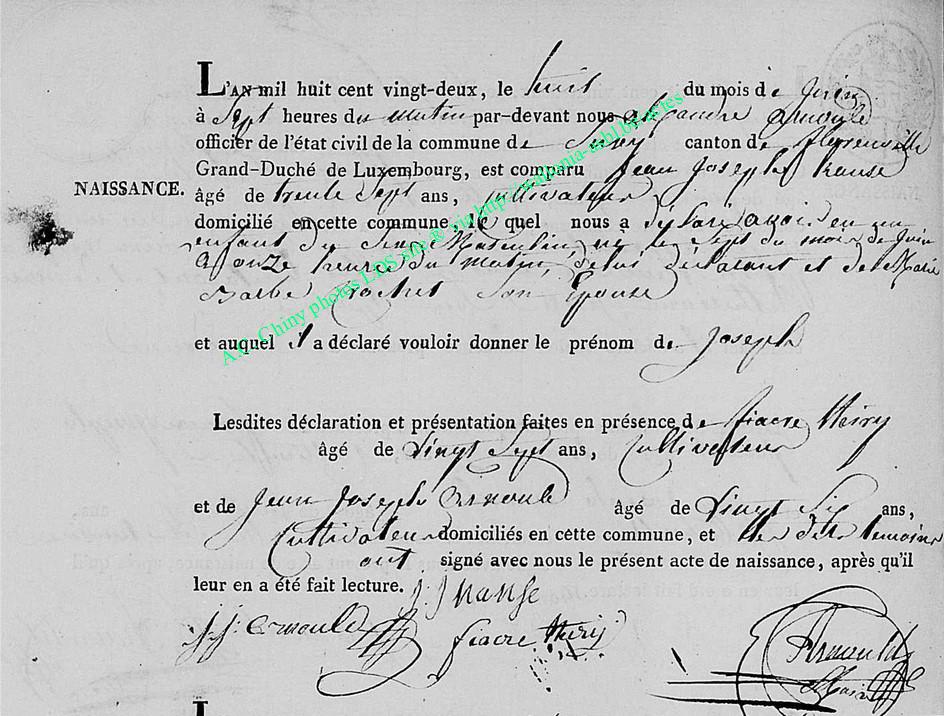 L'AN mil huit cent vingt-deux, le huit du mois de Juin
à Sept heures du matin par-devant nous alexandre arnould
officier de l'état civil de la commune de canton de florenville
Grand-Duché de Luxembourg, est comparu Jean Joseph hanse
NAISSANCE.
âgé de trente Sept ans, Cultivateur
domicilié en cette commune le quel nous a déclaré avoir eu un
enfant du Sexe Masculin, né le Sept du mois de Juin
a onze heures du matin, de lui déclarant et de Marie
Barbe son Epouse
et auquel il a déclaré vouloir donner le prénom de Joseph
Lesdites déclaration et présentation faites en présence de fiacre thiry
âgé de Vingt Sept ans, Cultivateur
et de Jean Joseph arnould âgé de Vingt Six ans,
Cultivateur domiciliés en cette commune, et les dits temoins
ont signé avec nous le présent acte de naissance, après qu'il
leur en a été fait lecture. JJ hanse
j j arnould fiacre thiry Arnould
A.C. Chiny photos LDS site © via http://wanonia-asbl.be/actes